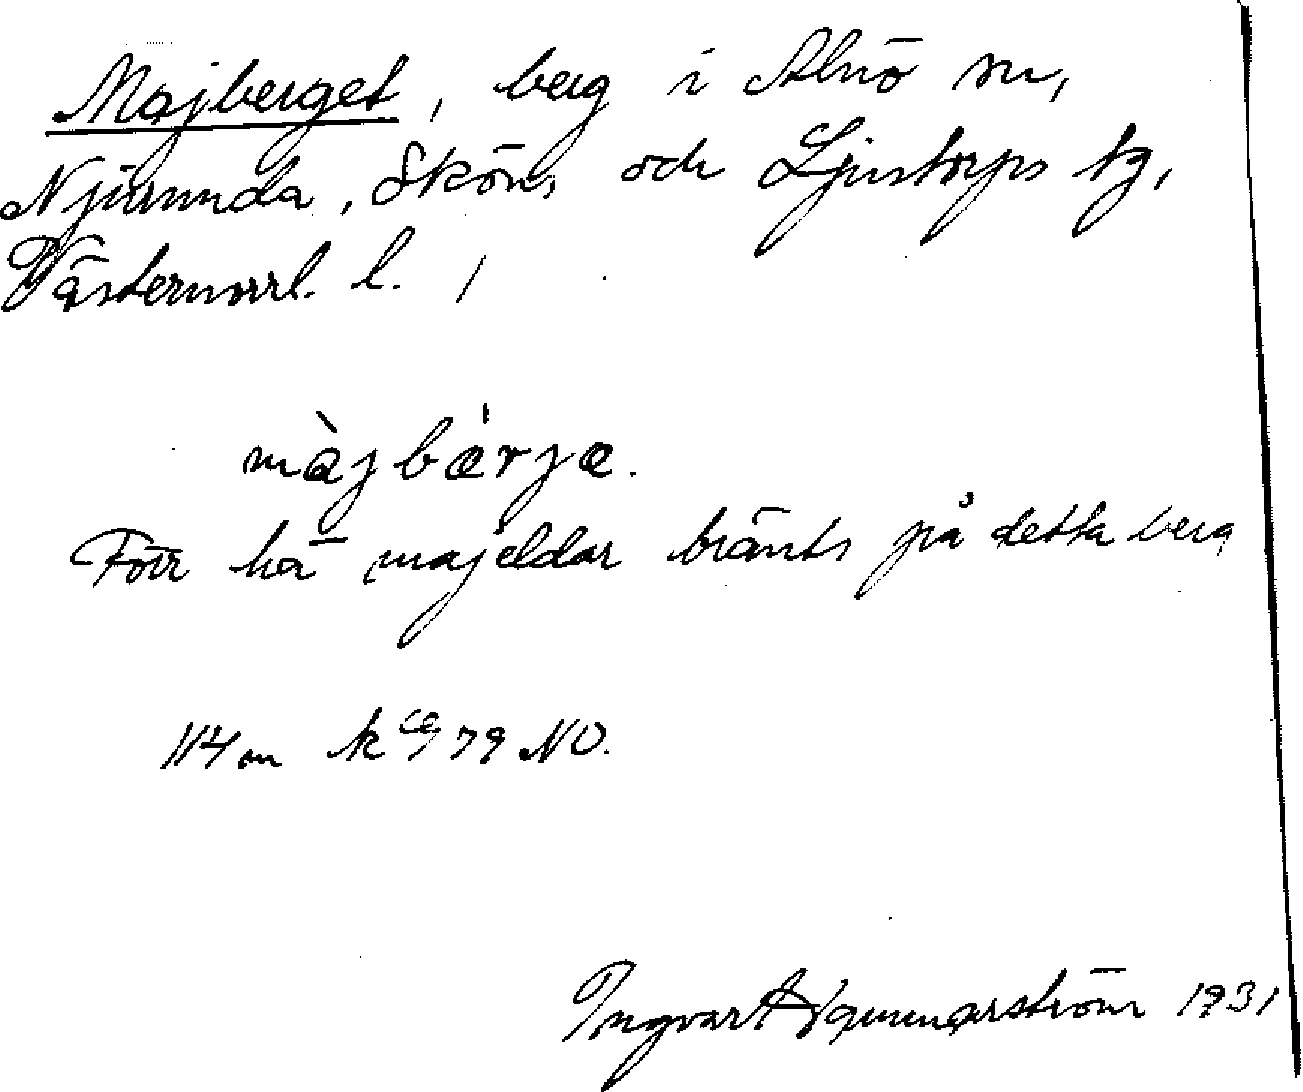 Majberget, berg i Alnö sn,
Njurunda, Sköns och Ljustorps tg,
Västernorrl. l.
màjbærjæ.
Förr ha majeldar bränts på detta berg
114 m k 79 NO.
Ingvar Hammarström 1931